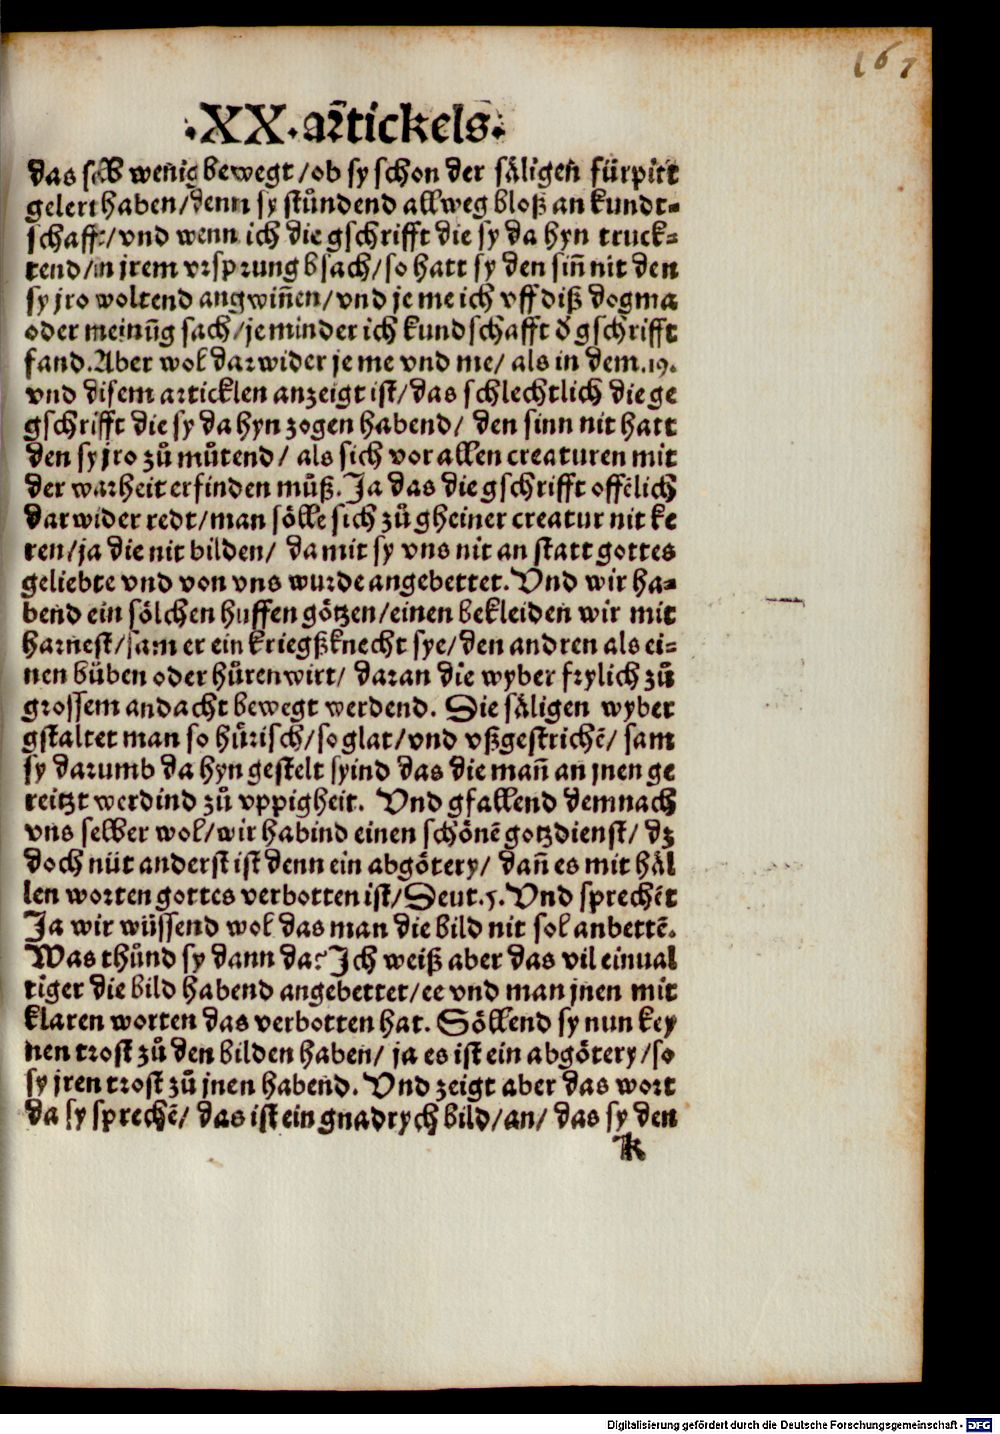 167
.XX. artickels.
das selb wenig bewegt / ob sy schon der säligen fürpitt
gelert haben / denn sy stůndend allweg bloß an kundt-
schafft / vnd wenn ich die gschrifft die sy da hyn truck-
tend / in jrem vrsprung bsach / so hatt sy den siñ nit den
sy jro woltend angwiñen / vnd je me ich vff diß dogma
oder meinũg sach / je minder ich kundschafft d̕ gschrifft
fand. Aber wol darwider je me vnd me / als in dem .19.
vnd disem articklen anzeigt ist / das schlechtlich die ge
gschrifft die sy da hyn zogen habend / den sinn nit hatt
den sy jro zů můtend / als sich vor allen creaturen mit
der warheit erfinden můß. Ja das die gschrifft offẽlich
darwider redt / man sölle sich zů gheiner creatur nit ke
ren / ja die nit bilden / damit sy vns nit an statt gottes
geliebte vnd von vns wurde angebettet. Vnd wir ha-
bend ein sölchen huffen götzen / einen bekleiden wir mit
harnest / sam er ein kriegßknecht sye / den andren als ei-
nen bůben oder hůrenwirt / daran die wyber frylich zů
grossem andacht bewegt werdend. Die säligen wyber
gstaltet man so hůrisch / so glat / vnd vßgestrichẽ / sam
sy darumb da hyn gestelt syind das die mañ an jnen ge
reitzt werdind zů vppigheit. Vnd gfallend demnach
vns selber wol / wir habind einen schönẽ gotzdienst / dz
doch nüt anderst ist denn ein abgötery / dañ es mit häl
len worten gottes verbotten ist / Deut. 5. Vnd sprechẽt
Ja wir wüssend wol das man die bild nit sol anbettẽ.
Was thůnd sy dann da? Ich weiß aber das vil einual
tiger die bild habend angebettet / ee vnd man jnen mit
klaren worten das verbotten hat. Söllend sy nun key
nen trost zů den bilden haben / ja es ist ein abgötery / so
sy jren trost zů jnen habend. Vnd zeigt aber das wort
da sy sprechẽ / das ist ein gnadrych bild / an / das sy den
K
Digitalisierung gefördert durch die Deutsche Forschungsgemeinschaft - DFG